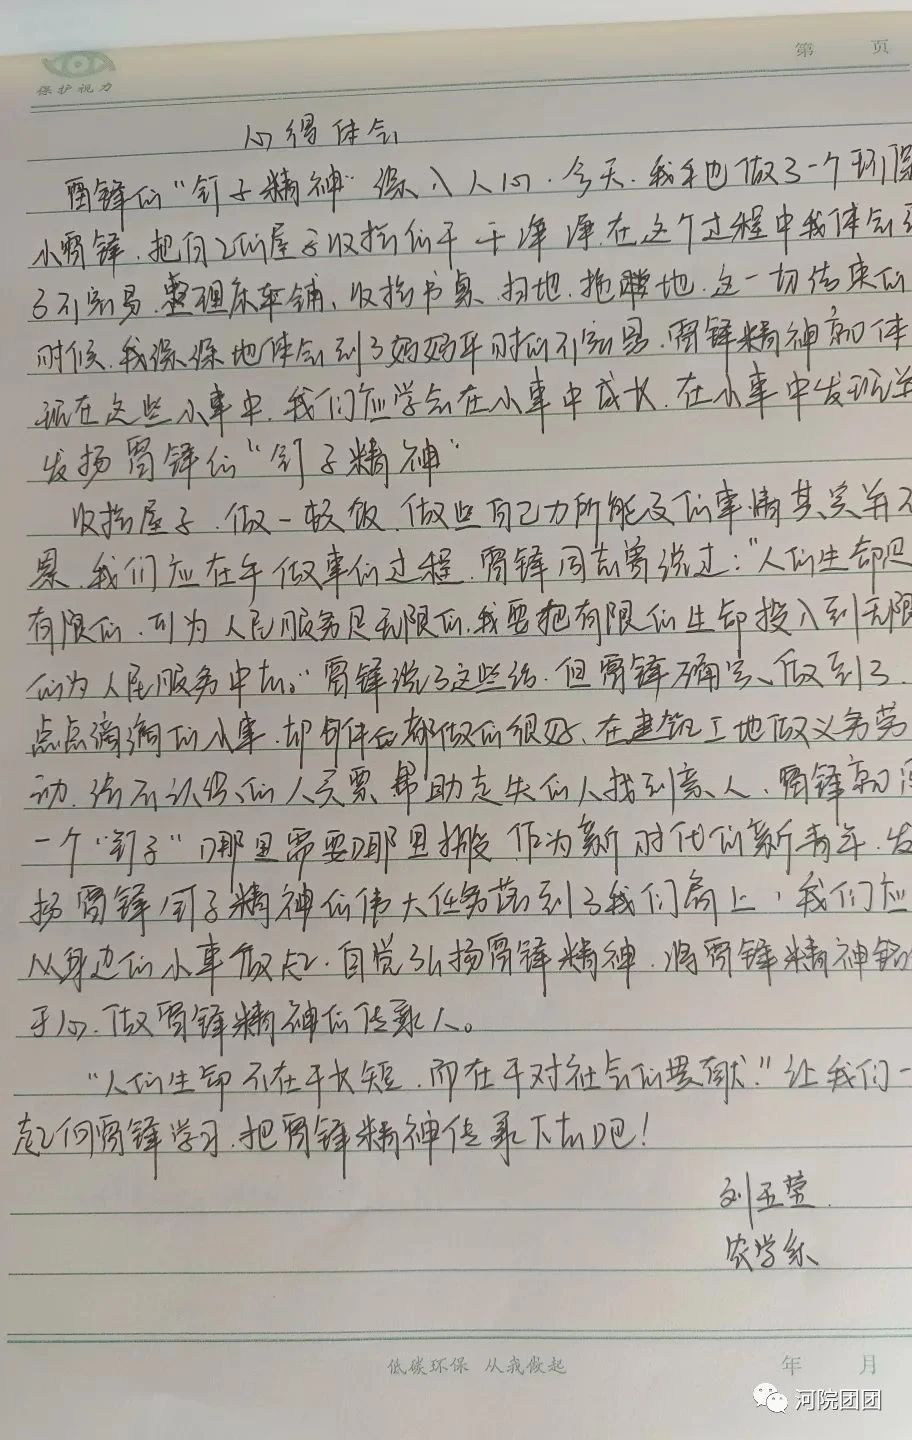 第 页
保护视力
心得体会
雷锋的“钉子精神”深入人心.今天.我也做了一个环保
小雷锋.把自己的屋子收拾的干干净净.在这个过程中我体会到
了不容易.整理床铺、收拾书桌.扫地.拖地.这一切结束的
时候.我深深地体会到了妈妈平时的不容易.雷锋精神就体
现在这些小事中.我们应学会在小事中成长.在小事中发现并
发扬雷锋的“钉子精神”
收拾屋子.做一顿饭.做些自己力所能及的事情其实并不
累.我们应在乎做事的过程.雷锋同志曾说过:“人的生命是
有限的.可为人民服务是无限的.我要把有限的生命投入到无限
的为人民服务中去。”雷锋说了这些话.但雷锋确实、做到了.
点点滴滴的小事.却件件都做的很好、在建筑工地做义务劳
动.给不认识的人买票.帮助走失的人找到亲人.雷锋就像
一个“钉子”哪里需要哪里搬.作为新时代的新青年.发
扬雷锋钉子精神的伟大任务落到了我们肩上,我们应
从身边的小事做起.自觉弘扬雷锋精神.将雷锋精神铭记
于心.做雷锋精神的传承人。
“人的生命不在于长短.而在于对社会的贡献.”让我们一
起向雷锋学习.把雷锋精神传承下去吧!
刘玉莹.
农学系
低碳环保 从我做起
年 月
河院团团